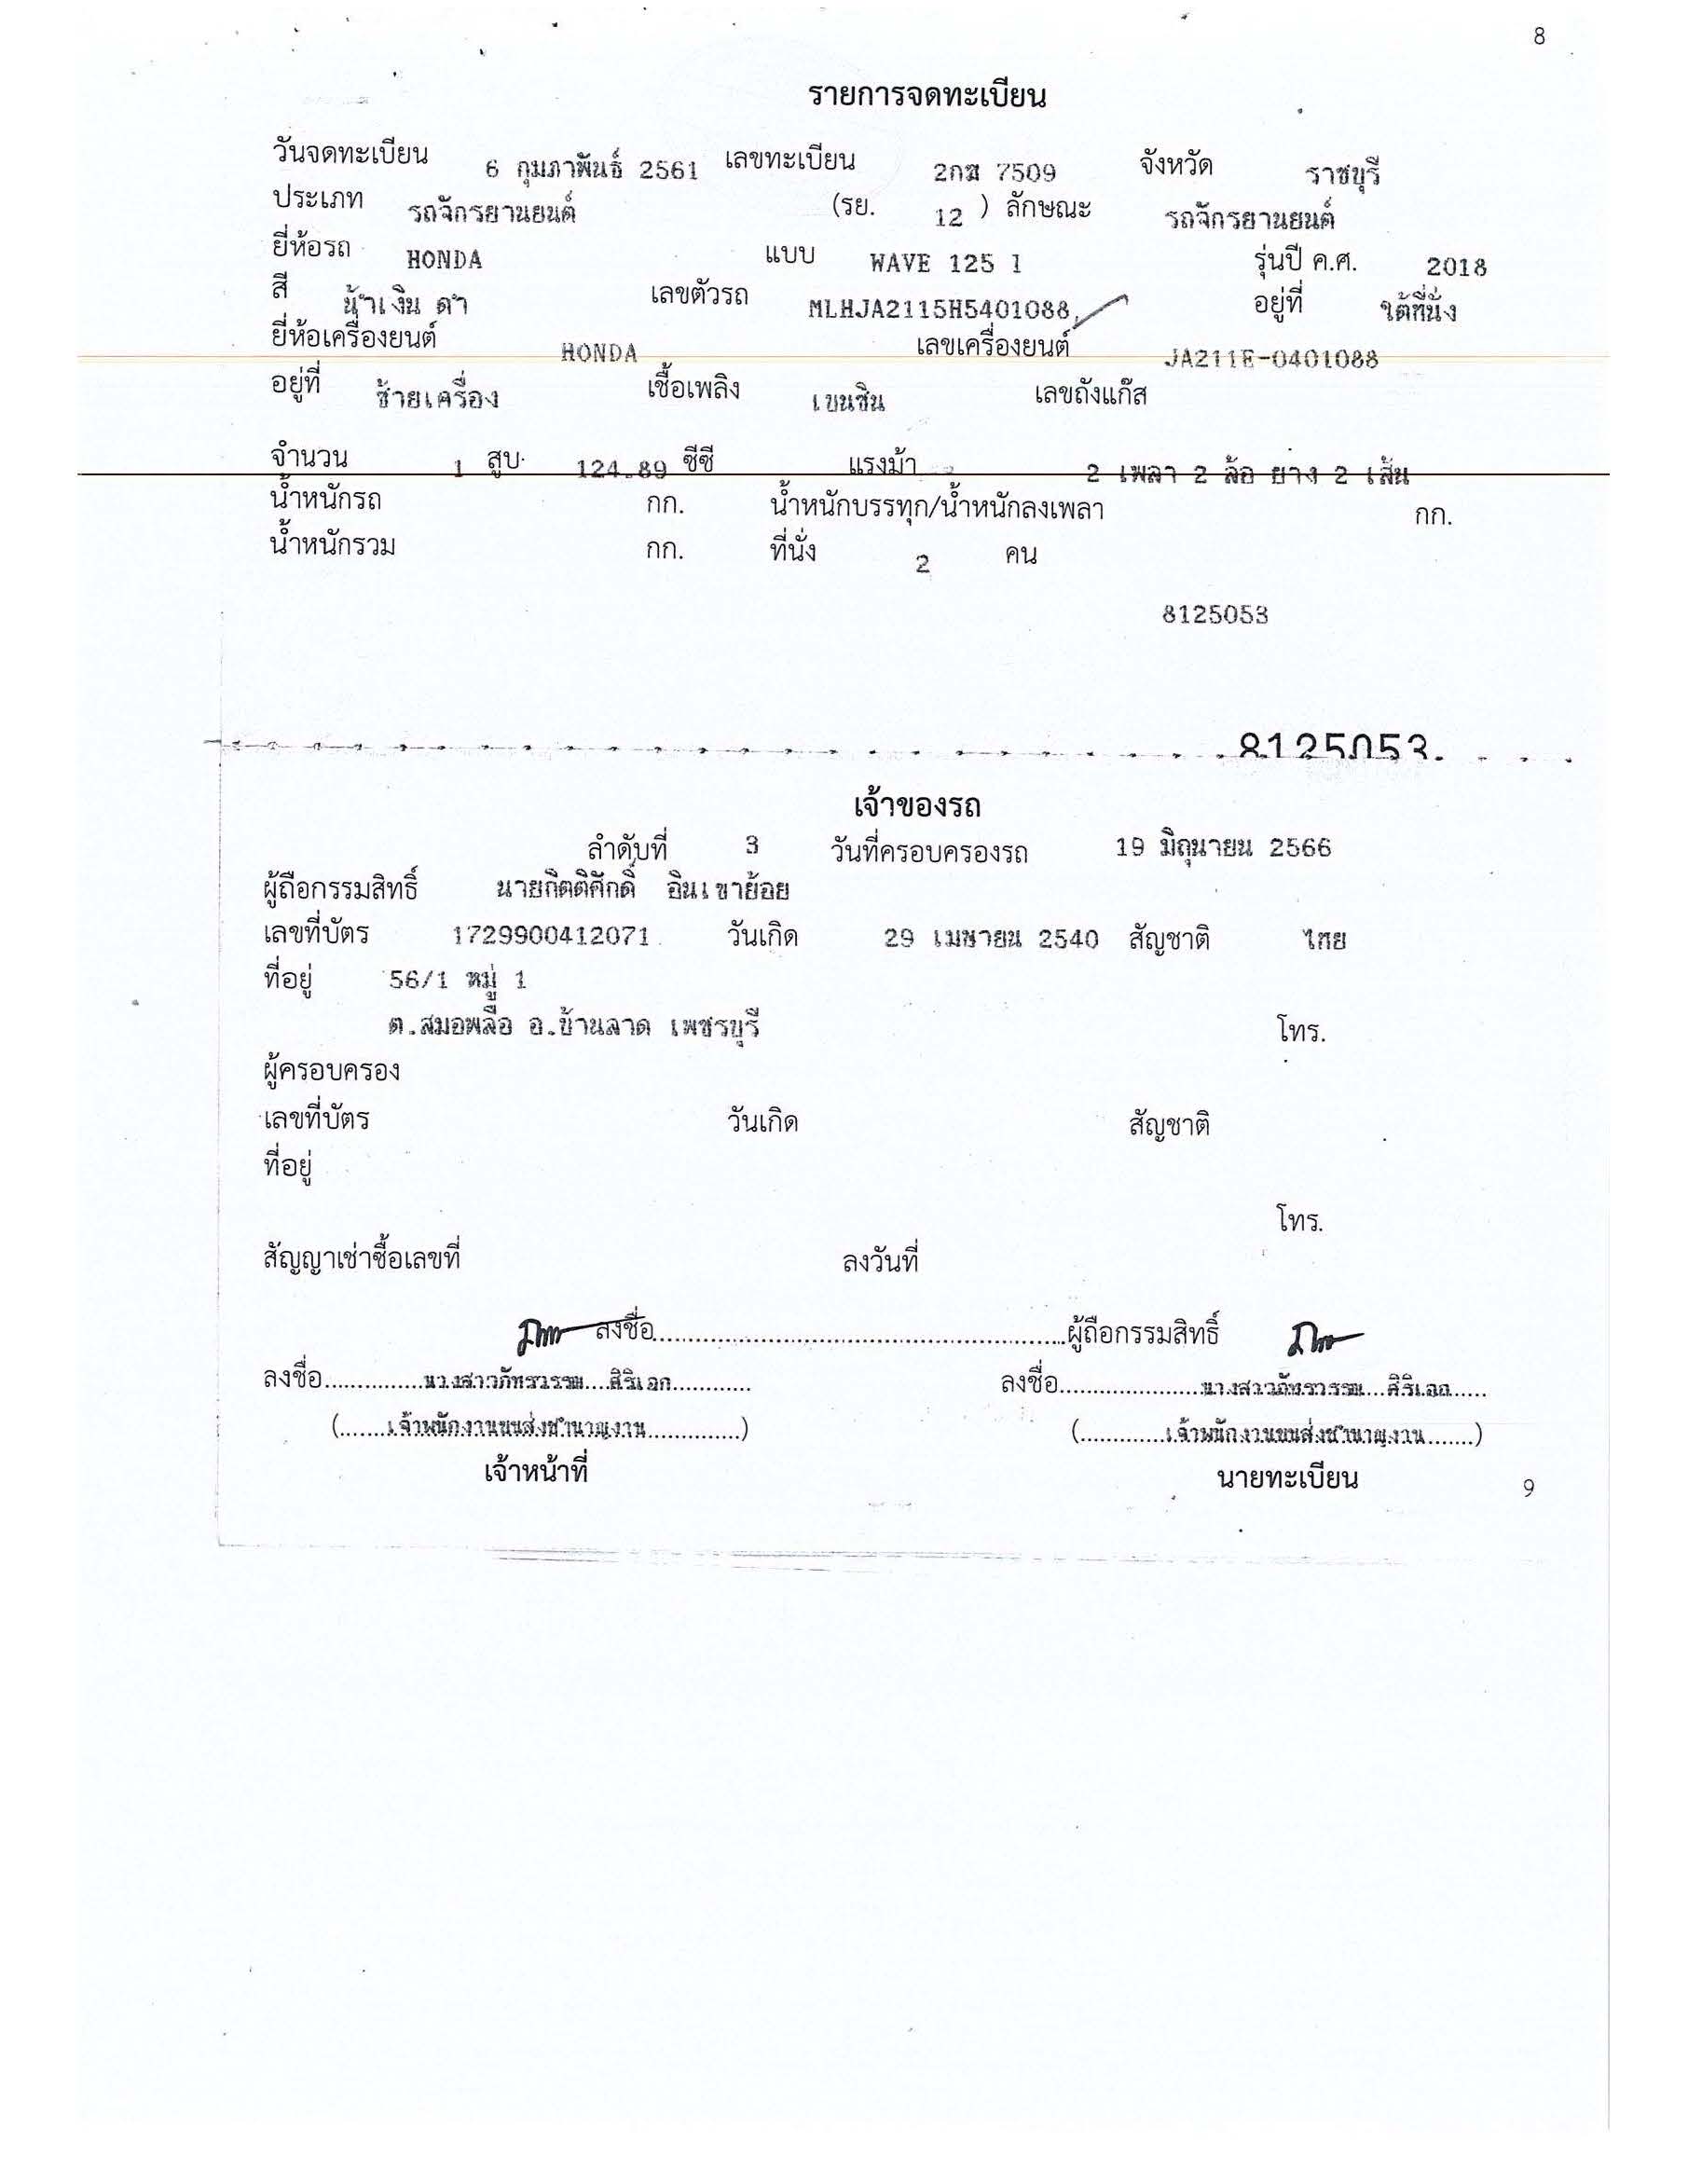 8
รายการจดทะเบียน
วันจดทะเบียน 6 กุมภาพันธ์ 2561 เลขทะเบียน 2กฆ 7509 จังหวัด ราชบุรี
ประเภท รถจักรยานยนต์ (รย. 12 ) ลักษณะ รถจักรยานยนต์
ยี่ห้อรถ HONDA แบบ WAVE 125 I รุ่นปี ค.ศ. 2018
สี น้ำเงิน ดำ เลขตัวรถ MLHJA2115H5401088 อยู่ที่ ใต้ที่นั่ง
ยี่ห้อเครื่องยนต์ HONDA เลขเครื่องยนต์ JA211E-0401088
อยู่ที่ ซ้ายเครื่อง เชื้อเพลิง เบนซิน เลขถังแก๊ส
จำนวน 1 สูบ 124.89 ซีซี แรงม้า 2 เพลา 2 ล้อ ยาง 2 เส้น
น้ำหนักรถ กก. น้ำหนักบรรทุก/น้ำหนักลงเพลา กก.
น้ำหนักรวม กก. ที่นั่ง 2 คน
8125053
8125053
เจ้าของรถ
ลำดับที่ 3 วันที่ครอบครองรถ 19 มิถุนายน 2566
ผู้ถือกรรมสิทธิ์ นายกิตติศักดิ์ อินเขาย้อย
เลขที่บัตร 1729900412071 วันเกิด 29 เมษายน 2540 สัญชาติ ไทย
ที่อยู่ 56/1 หมู่ 1
ต.สมอพลือ อ.บ้านลาด เพชรบุรี โทร.
ผู้ครอบครอง
เลขที่บัตร วันเกิด สัญชาติ
ที่อยู่
โทร.
สัญญาเช่าซื้อเลขที่ ลงวันที่
ลงชื่อ ผู้ถือกรรมสิทธิ์
ลงชื่อ นางสาวภัทรวรรณ ศิริเอก ลงชื่อ นางสาวภัทรวรรณ ศิริเอก
(เจ้าพนักงานขนส่งชำนาญงาน) (เจ้าพนักงานขนส่งชำนาญงาน)
เจ้าหน้าที่ นายทะเบียน
9